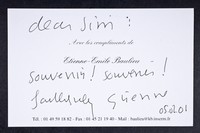 dear Sirin:
Avec les compliments de
Etienne-Emile Baulieu
Souvenirs! Souvenirs!
faithfully Etienne
05.02.01
Tél : 01 49 59 18 82 - Fax : 01 45 21 19 40 - Mail : baulieu@kb.inserm.fr